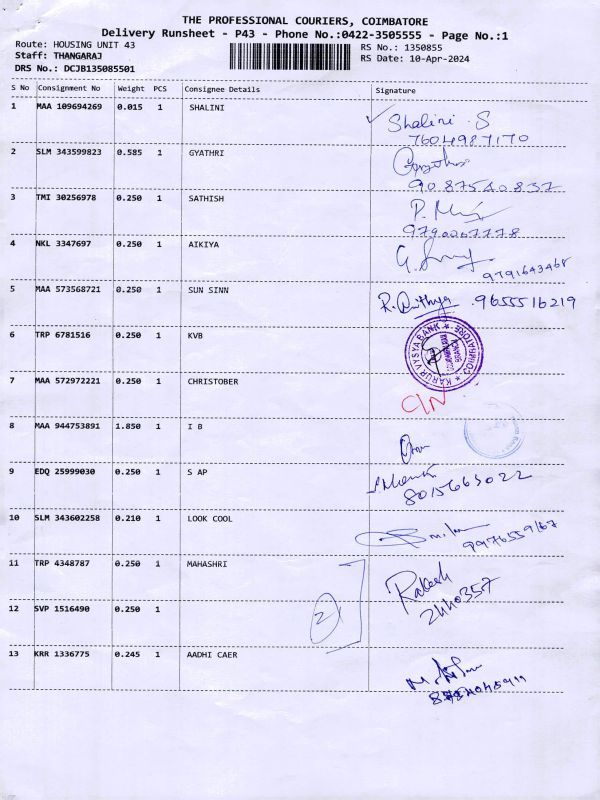 THE PROFESSIONAL COURIERS, COIMBATORE
Delivery Runsheet - P43 - Phone No.:0422-3505555 - Page No.:1
Route: HOUSING UNIT 43 RS No.: 1350855
Staff: THANGARAJ RS Date: 10-Apr-2024
DRS No.: DCJB135085501
S No Consignment No Weight PCS Consignee Details Signature
1 MAA 109694269 0.015 1 SHALINI Shalini S
7604987170
2 SLM 343599823 0.585 1 GYATHRI
9087540837
3 TMI 30256978 0.250 1 SATHISH
9790007778
4 NKL 3347697 0.250 1 AIKIYA
9791643468
5 MAA 573568721 0.250 1 SUN SINN R. Nithya 9655516219
6 TRP 6781516 0.250 1 KVB KARUR VYSYA BANK COIMBATORE
7 MAA 572972221 0.250 1 CHRISTOBER
8 MAA 944753891 1.850 1 I B
9 EDQ 25999030 0.250 1 S AP
8015663022
10 SLM 343602258 0.210 1 LOOK COOL
9976559167
11 TRP 4348787 0.250 1 MAHASHRI Rakesh
2440357
12 SVP 1516490 0.250 1 2
13 KRR 1336775 0.245 1 AADHI CAER